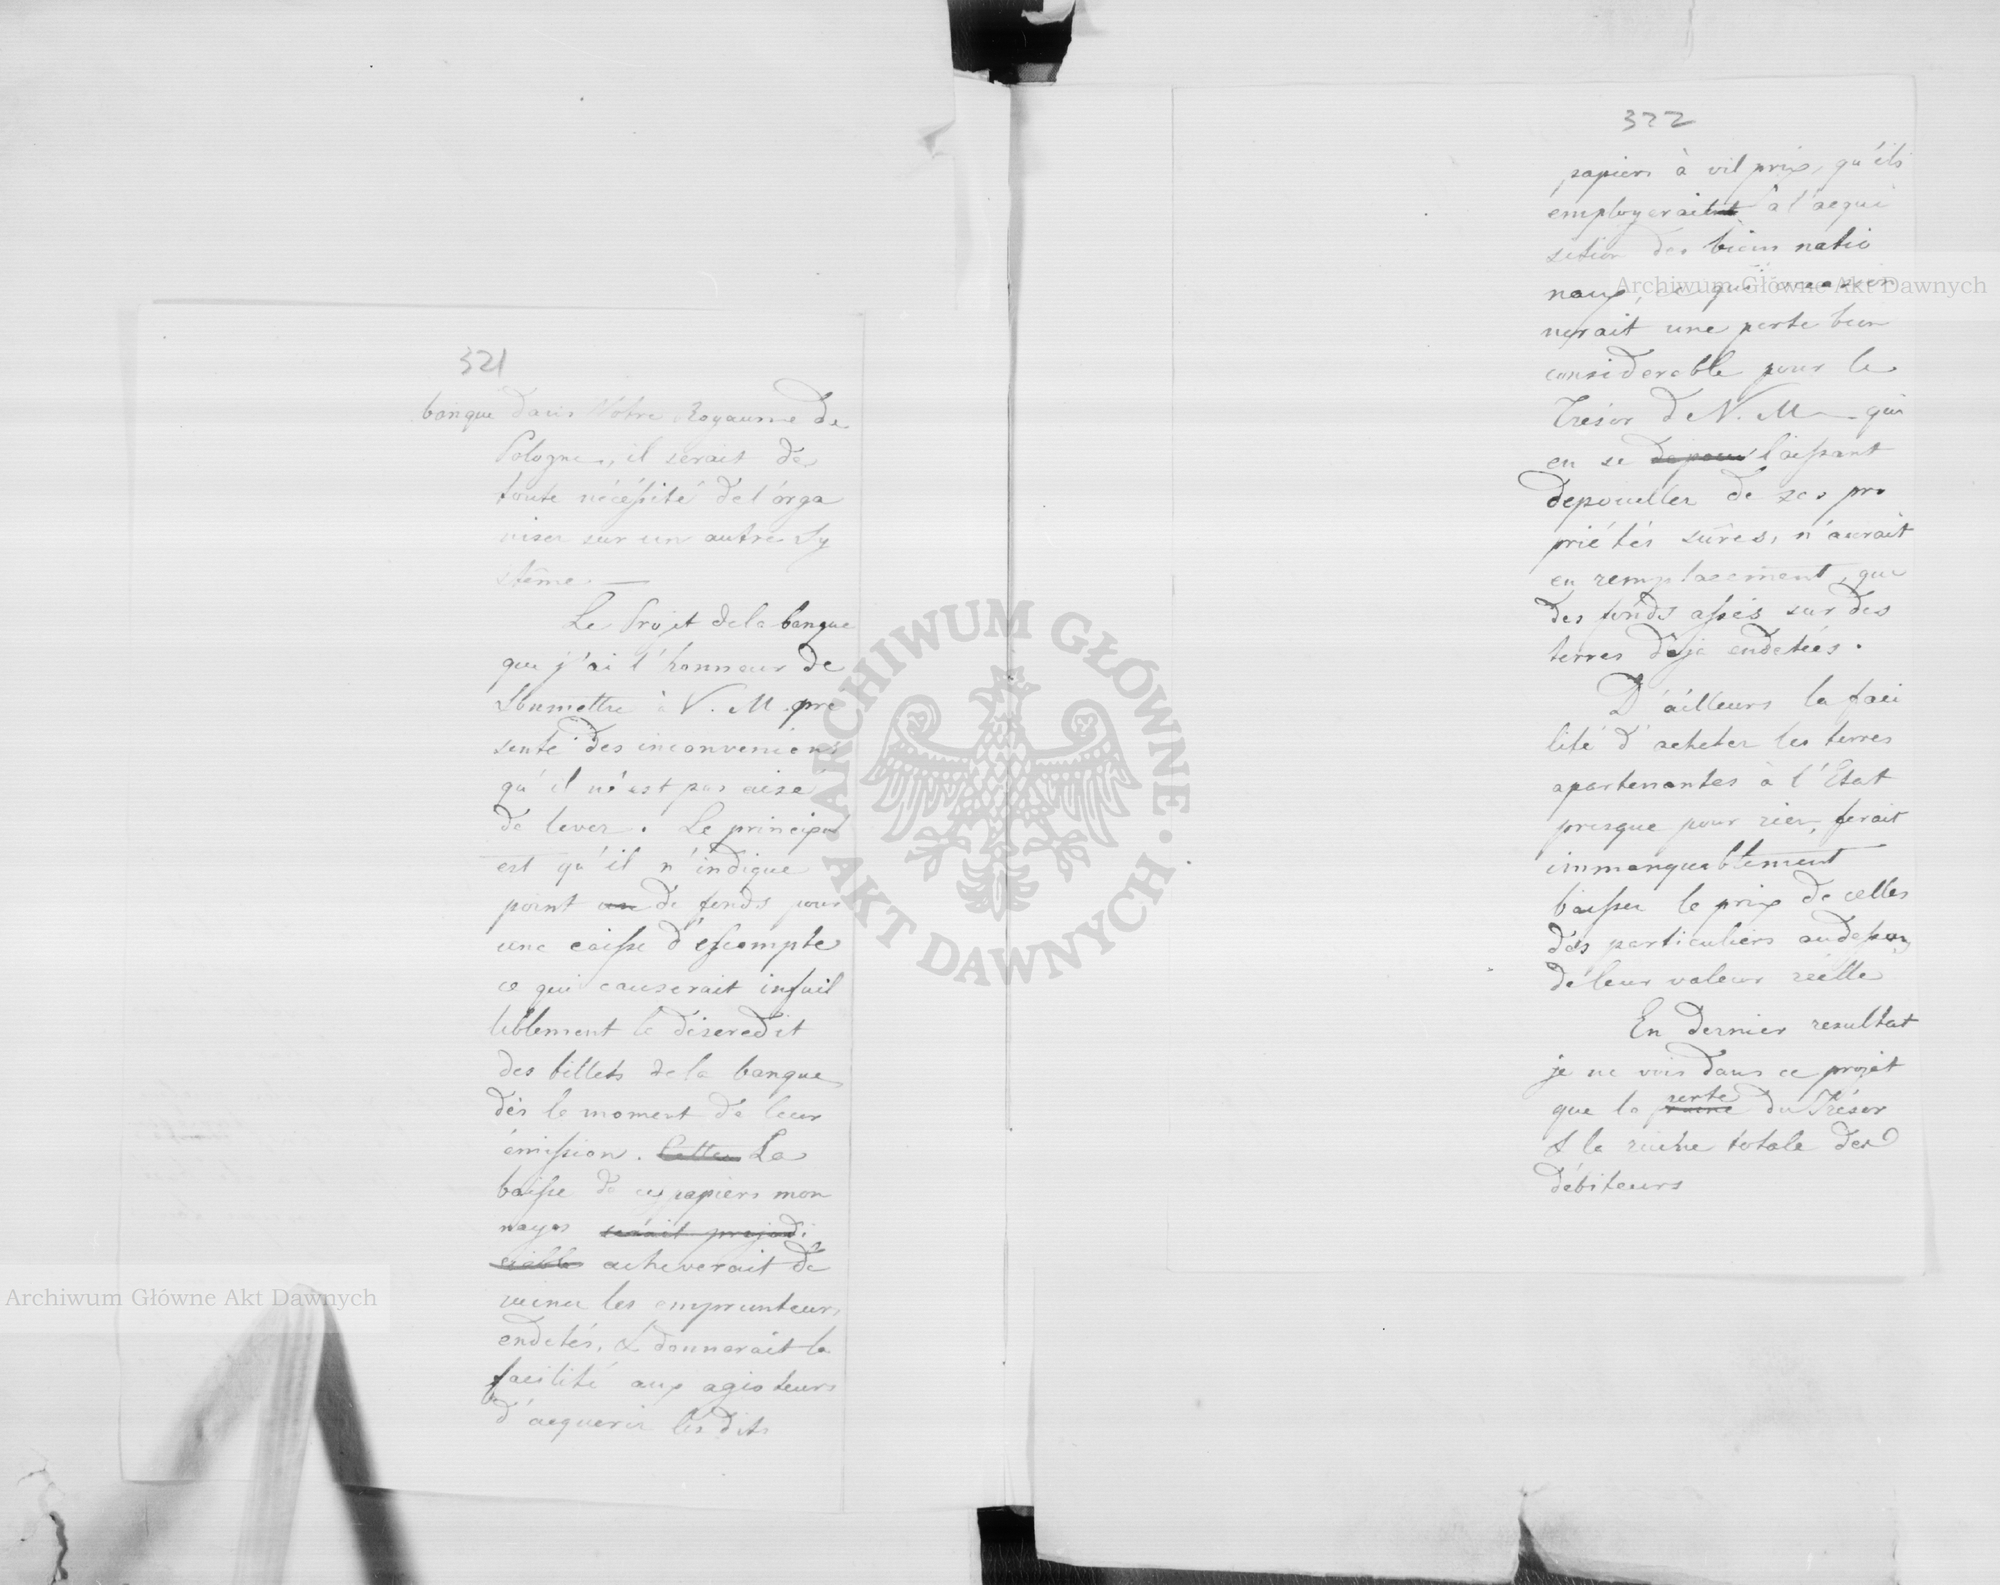 321
banque dans Votre Royaume de
Pologne, il serait de
toute nécéssité de l'orga
niser sur un autre Sy
stême —
Le Projet de la banque
que j'ai l'honneur de
Soumettre à V. M. pre
sente des inconveniens
qu'il n'est pas aisé
de lever. Le principal
est qu'il n'indique
point de fonds pour
une caisse d'escompte
ce qui causerait infail
liblement le discredit
des billets de la banque
dès le moment de leur
émission. La
baisse de ces papiers mon
nayes serait prejudi
ciable acheverait de
ruiner les emprunteurs
endetés, & donnerait la
facilité aux agioteurs
d'acquerir les dits
322
papiers à vil prix, qu'ils
employerait à l'acqui
sition des biens natio
naux, ce qui occasion
nerait une perte bien
considerable pour le
Trésor de V. M — qui
en se depouil laissant
depouiller de ses pro
priétés sûres, n'aurait
en remplacement, que
des fonds assis sur des
terres déja endetées.
D'ailleurs la faci
lité d'acheter les terres
apartenantes à l'Etat
presque pour rien, ferait
immanquablement
baisser le prix de celles
des particuliers audessous
de leur valeur réelle
En dernier resultat
je ne vois dans ce projet
que la ruine perte du Trésor
& la ruine totale des
débiteurs
Archiwum Główne Akt Dawnych
Archiwum Główne Akt Dawnych
ARCHIWUM GŁÓWNE · AKT DAWNYCH ·